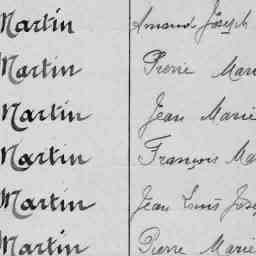 Martin Amand Joseph
Martin Pierre Mari
Martin Jean Marie
Martin François Ma
Martin Jean Louis Jose
Martin Pierre Marie